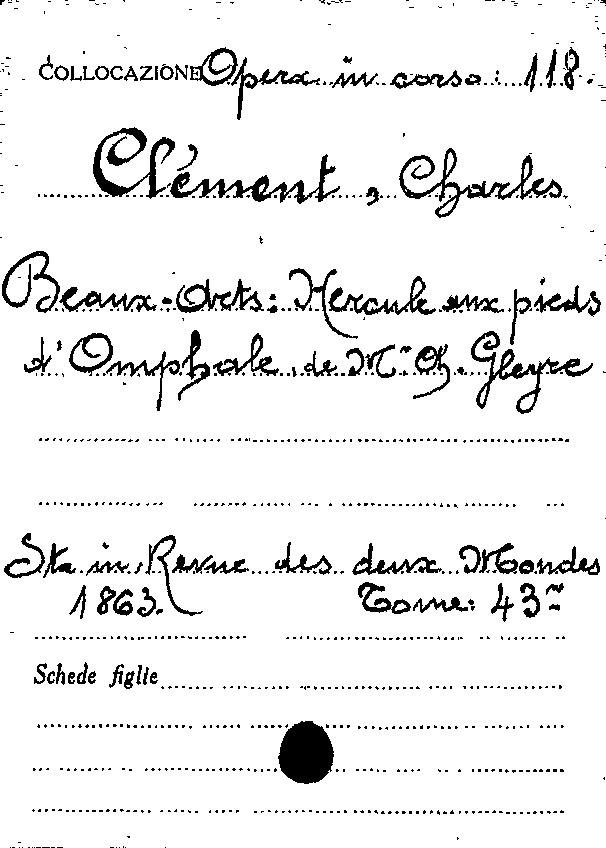 COLLOCAZIONE Opera in corso: 118.
Clément, Charles
Beaux-Arts: Hercule aux pieds
d'Omphale, de Mr Ch. Gleyre
Sta in, Revue des deux Mondes
1863. Tome: 43m
Schede figlie